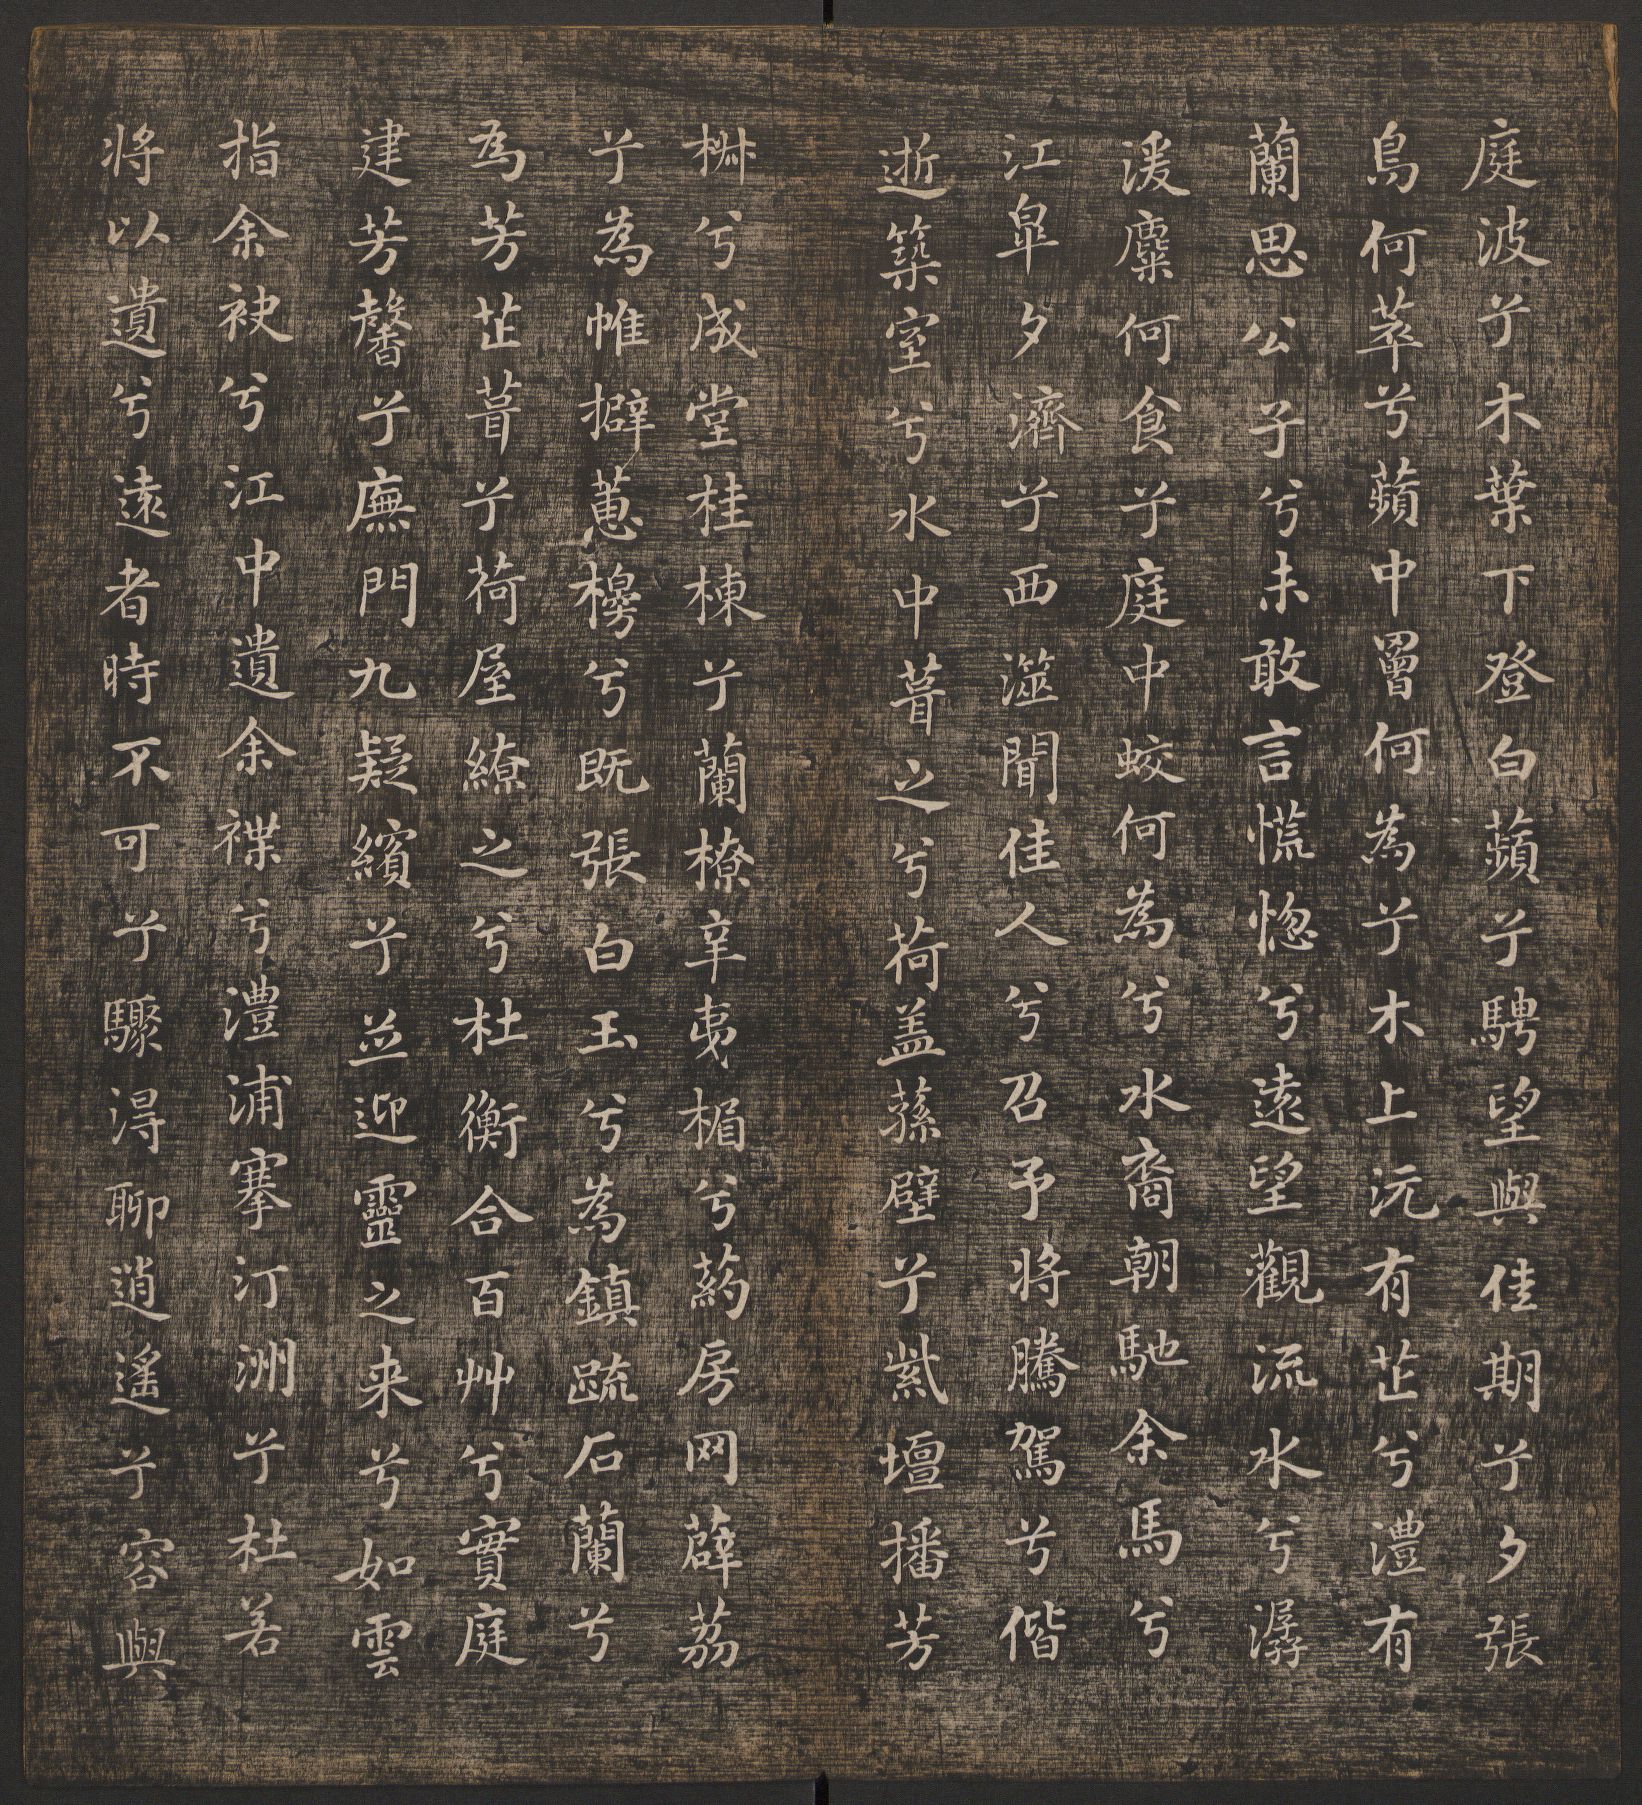 庭波兮木葉下登白蘋兮騁望與佳期兮夕張
鳥何萃兮蘋中罾何為兮木上沅有芷兮澧有
蘭思公子兮未敢言慌惚兮遠望觀流水兮潺
湲麋何食兮庭中蛟何為兮水裔朝馳余馬兮
江皋夕濟兮西澨聞佳人兮召予將騰駕兮偕
逝築室兮水中葺之兮荷盖蓀壁兮紫壇播芳
椒兮成堂桂棟兮蘭橑辛夷楣兮葯房网薜荔
兮為帷擗蕙櫋兮既張白玉兮為鎮疏石蘭兮
為芳芷葺兮荷屋繚之兮杜衡合百艸兮實庭
建芳馨兮廡門九疑繽兮並迎靈之来兮如雲
指余袂兮江中遺余褋兮澧浦搴汀洲兮杜若
將以遺兮遠者時不可兮驟得聊逍遙兮容與